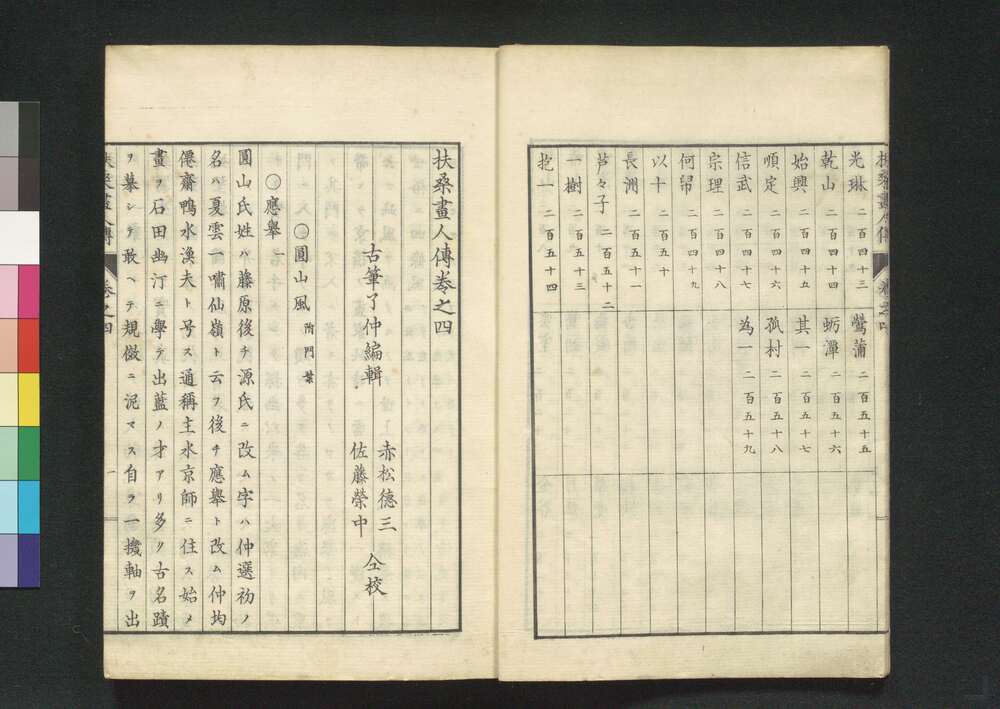 光琳 二百四十三
乾山 二百四十四
始興 二百四十五
順定 二百四十六
信武 二百四十七
宗理 二百四十八
何帠 二百四十九
以十 二百五十
長洲 二百五十一
芦々子 二百五十二
一樹 二百五十三
抱一 二百五十四
鶯蒲 二百五十五
蛎潭 二百五十六
其一 二百五十七
孤村 二百五十八
為一 二百五十九
扶桑畫人傳巻之四
古筆了仲編輯
赤松徳三
佐藤榮中
仝校
〇圓山風 附門葉
〇應舉
圓山氏姓ハ藤原後チ源氏ニ改ム字ハ仲選初ノ
名ハ夏雲一嘯仙嶺ト云フ後チ應舉ト改ム仲均
僊齋鴨水漁夫ト号ス通稱主水京師ニ住ス始メ
畫ヲ石田幽汀ニ學テ出藍ノ才アリ多ク古名蹟
ヲ摹シテ敢ヘテ規倣ニ泥マス自ラ一機軸ヲ出
一